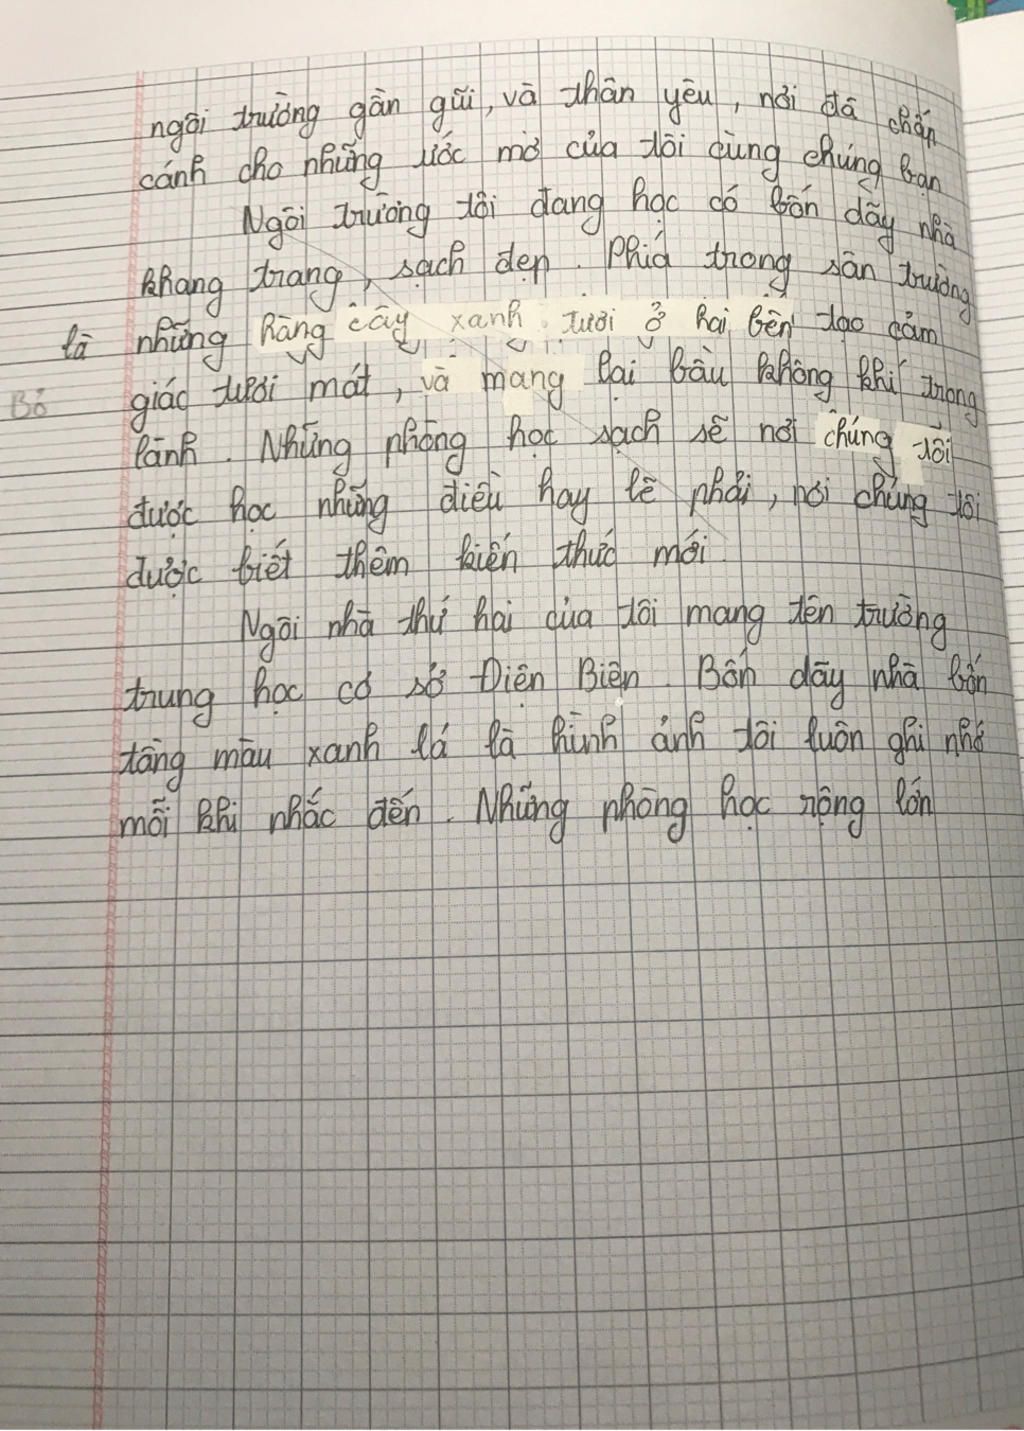 ngôi trường gần gũi, và thân yêu, nơi đã chắp
cánh cho những ước mơ của tôi cùng chúng bạn
Ngôi trường tôi đang học có bốn dãy nhà
khang trang, sạch đẹp. Phía trong sân trường
là những hàng cây xanh tươi ở hai bên tạo cảm
Bỏ
giác tươi mát, và mang lại bầu không khí trong
lành. Những phòng học sạch sẽ nơi chúng tôi
được học những điều hay lẽ phải, nơi chúng tôi
được biết thêm kiến thức mới.
Ngôi nhà thứ hai của tôi mang tên trường
trung học cơ sở Điện Biên. Bốn dãy nhà bốn
tầng màu xanh lá là hình ảnh tôi luôn ghi nhớ
mỗi khi nhắc đến. Những phòng học rộng lớn